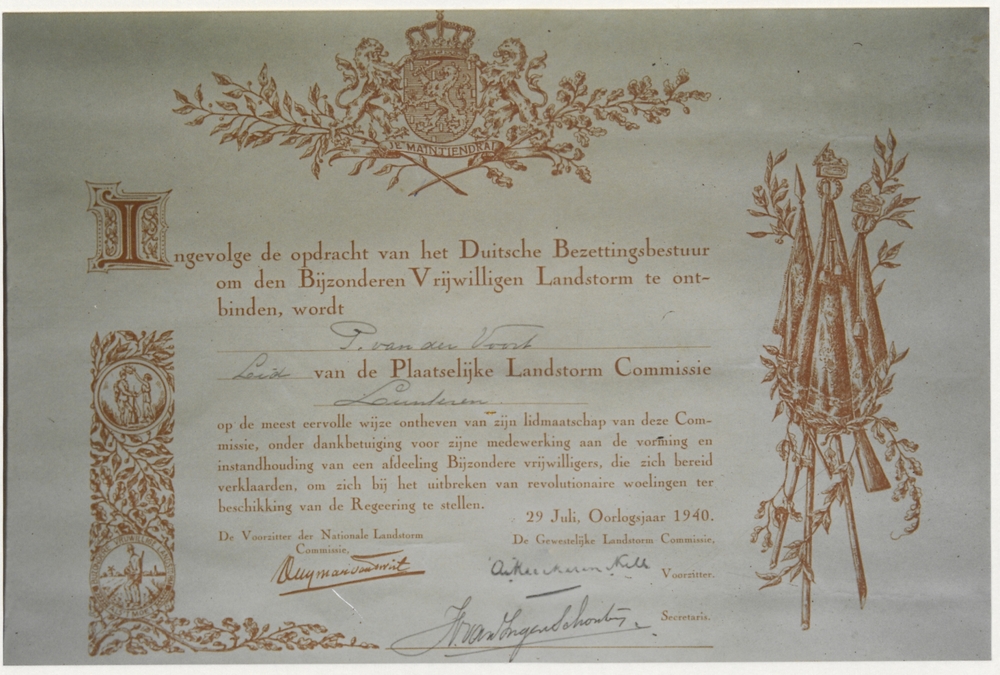 JE MAINTIENDRAI
Ingevolge de opdracht van het Duitsche Bezettingsbestuur
om den Bijzonderen Vrijwilligen Landstorm te ont-
binden, wordt
P. van der Voort
Leid van de Plaatselijke Landstorm Commissie
Lunteren
op de meest eervolle wijze ontheven van zijn lidmaatschap van deze Com-
missie, onder dankbetuiging voor zijne medewerking aan de vorming en
instandhouding van een afdeeling Bijzondere vrijwilligers, die zich bereid
verklaarden, om zich bij het uitbreken van revolutionaire woelingen ter
beschikking van de Regeering te stellen.
29 Juli, Oorlogsjaar 1940.
De Voorzitter der Nationale Landstorm
Commissie,
De Gewestelijke Landstorm Commissie,
Duymaer van Twist
Voorzitter.
H. van Ingen Schouten
Secretaris.